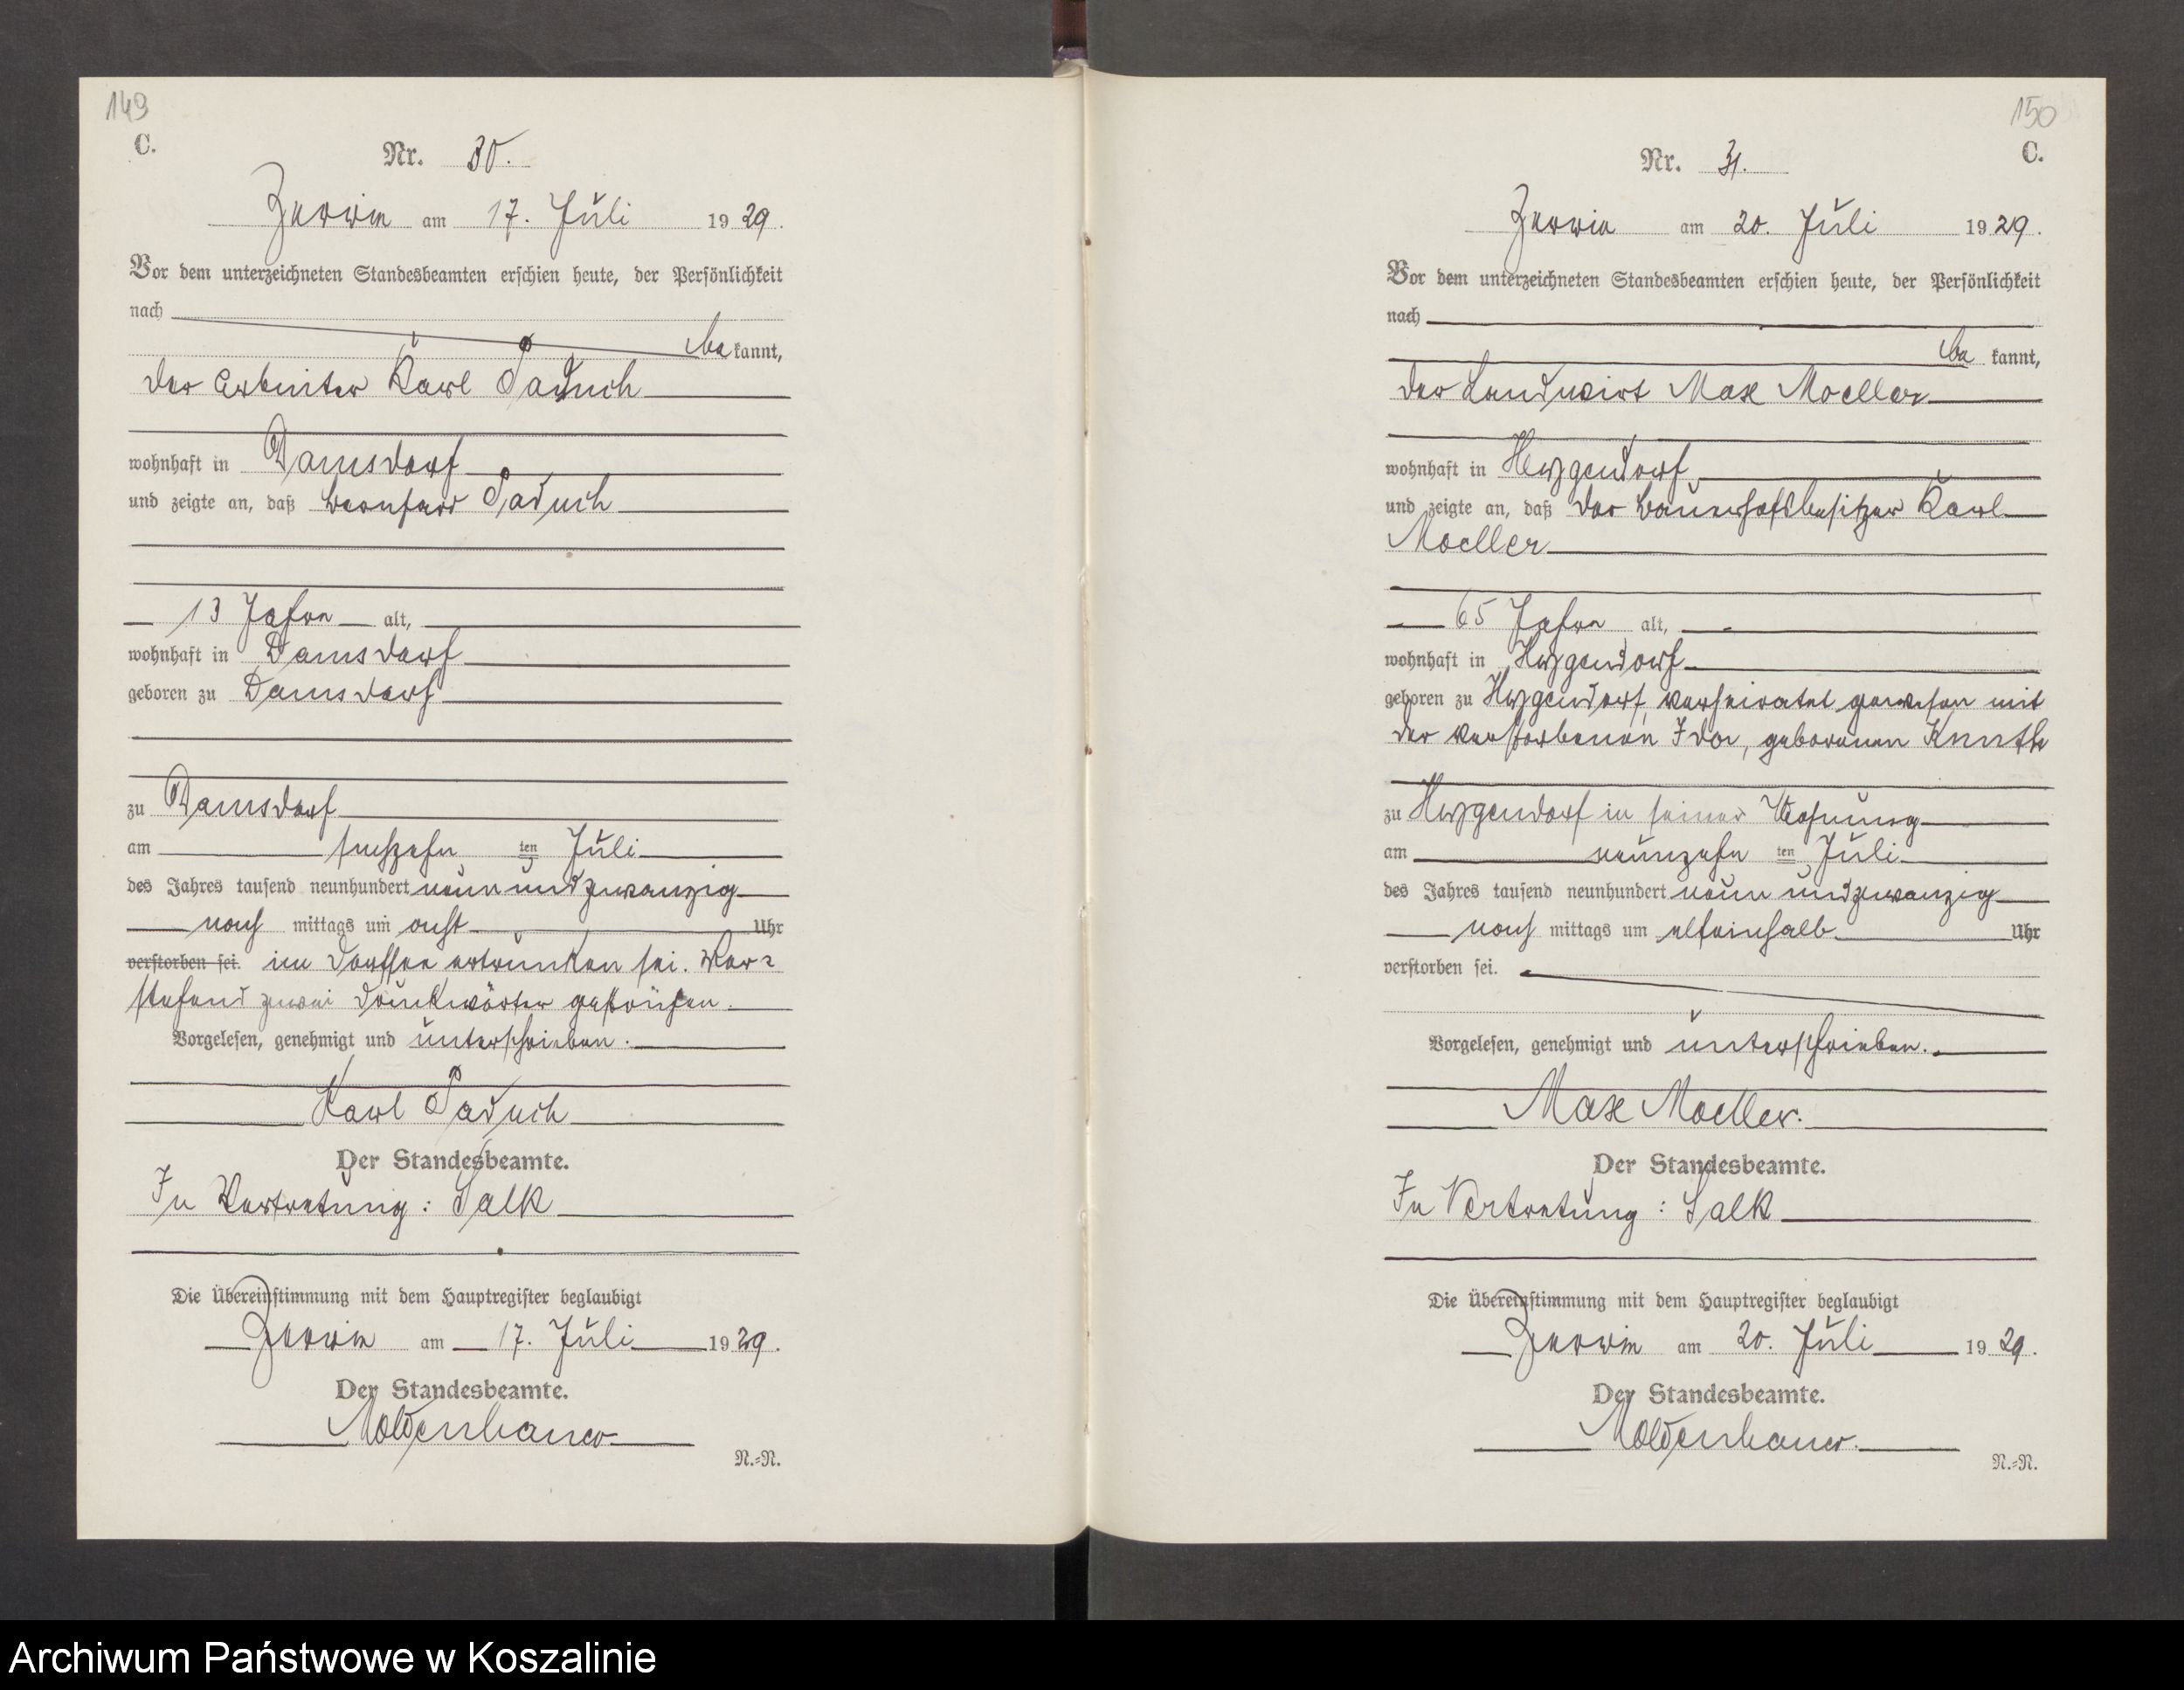 149
C.
Nr. 30.
Zerrin am 17. Juli 1929.
Vor dem unterzeichneten Standesbeamten erschien heute, der Persönlichkeit
nach
be kannt,
der Arbeiter Karl Paduch
wohnhaft in Damsdorf
und zeigte an, daß Bernhard Paduch
13 Jahre alt,
wohnhaft in Damsdorf
geboren zu Damsdorf
zu Damsdorf
am sechzehn ten Juli
des Jahres tausend neunhundert neun und zwanzig
nach mittags um acht Uhr
verstorben sei. im Dorfsee ertrunken sei. Vor-
stehend zwei Druckwörter gestrichen.
Vorgelesen, genehmigt und unterschrieben.
Karl Paduch
Der Standesbeamte.
In Vertretung: Salk
Die Übereinstimmung mit dem Hauptregister beglaubigt
Zerrin am 17. Juli 1929.
Der Standesbeamte.
Moldenhauer
N.-N.
150
C.
Nr. 31.
Zerrin am 20. Juli 1929.
Vor dem unterzeichneten Standesbeamten erschien heute, der Persönlichkeit
nach
be kannt,
der Landwirt Max Moeller
wohnhaft in Hygendorf
und zeigte an, daß der Bauernhofsbesitzer Karl
Moeller
65 Jahre alt,
wohnhaft in Hygendorf
geboren zu Hygendorf, verheiratet gewesen mit
der verstorbenen Ida, geborenen Knuth
zu Hygendorf in seiner Wohnung
am neunzehn ten Juli
des Jahres tausend neunhundert neun und zwanzig
nach mittags um elfeinhalb Uhr
verstorben sei.
Vorgelesen, genehmigt und unterschrieben.
Max Moeller.
Der Standesbeamte.
In Vertretung: Salk
Die Übereinstimmung mit dem Hauptregister beglaubigt
Zerrin am 20. Juli 1929.
Der Standesbeamte.
Moldenhauer.
N.-N.
Archiwum Państwowe w Koszalinie